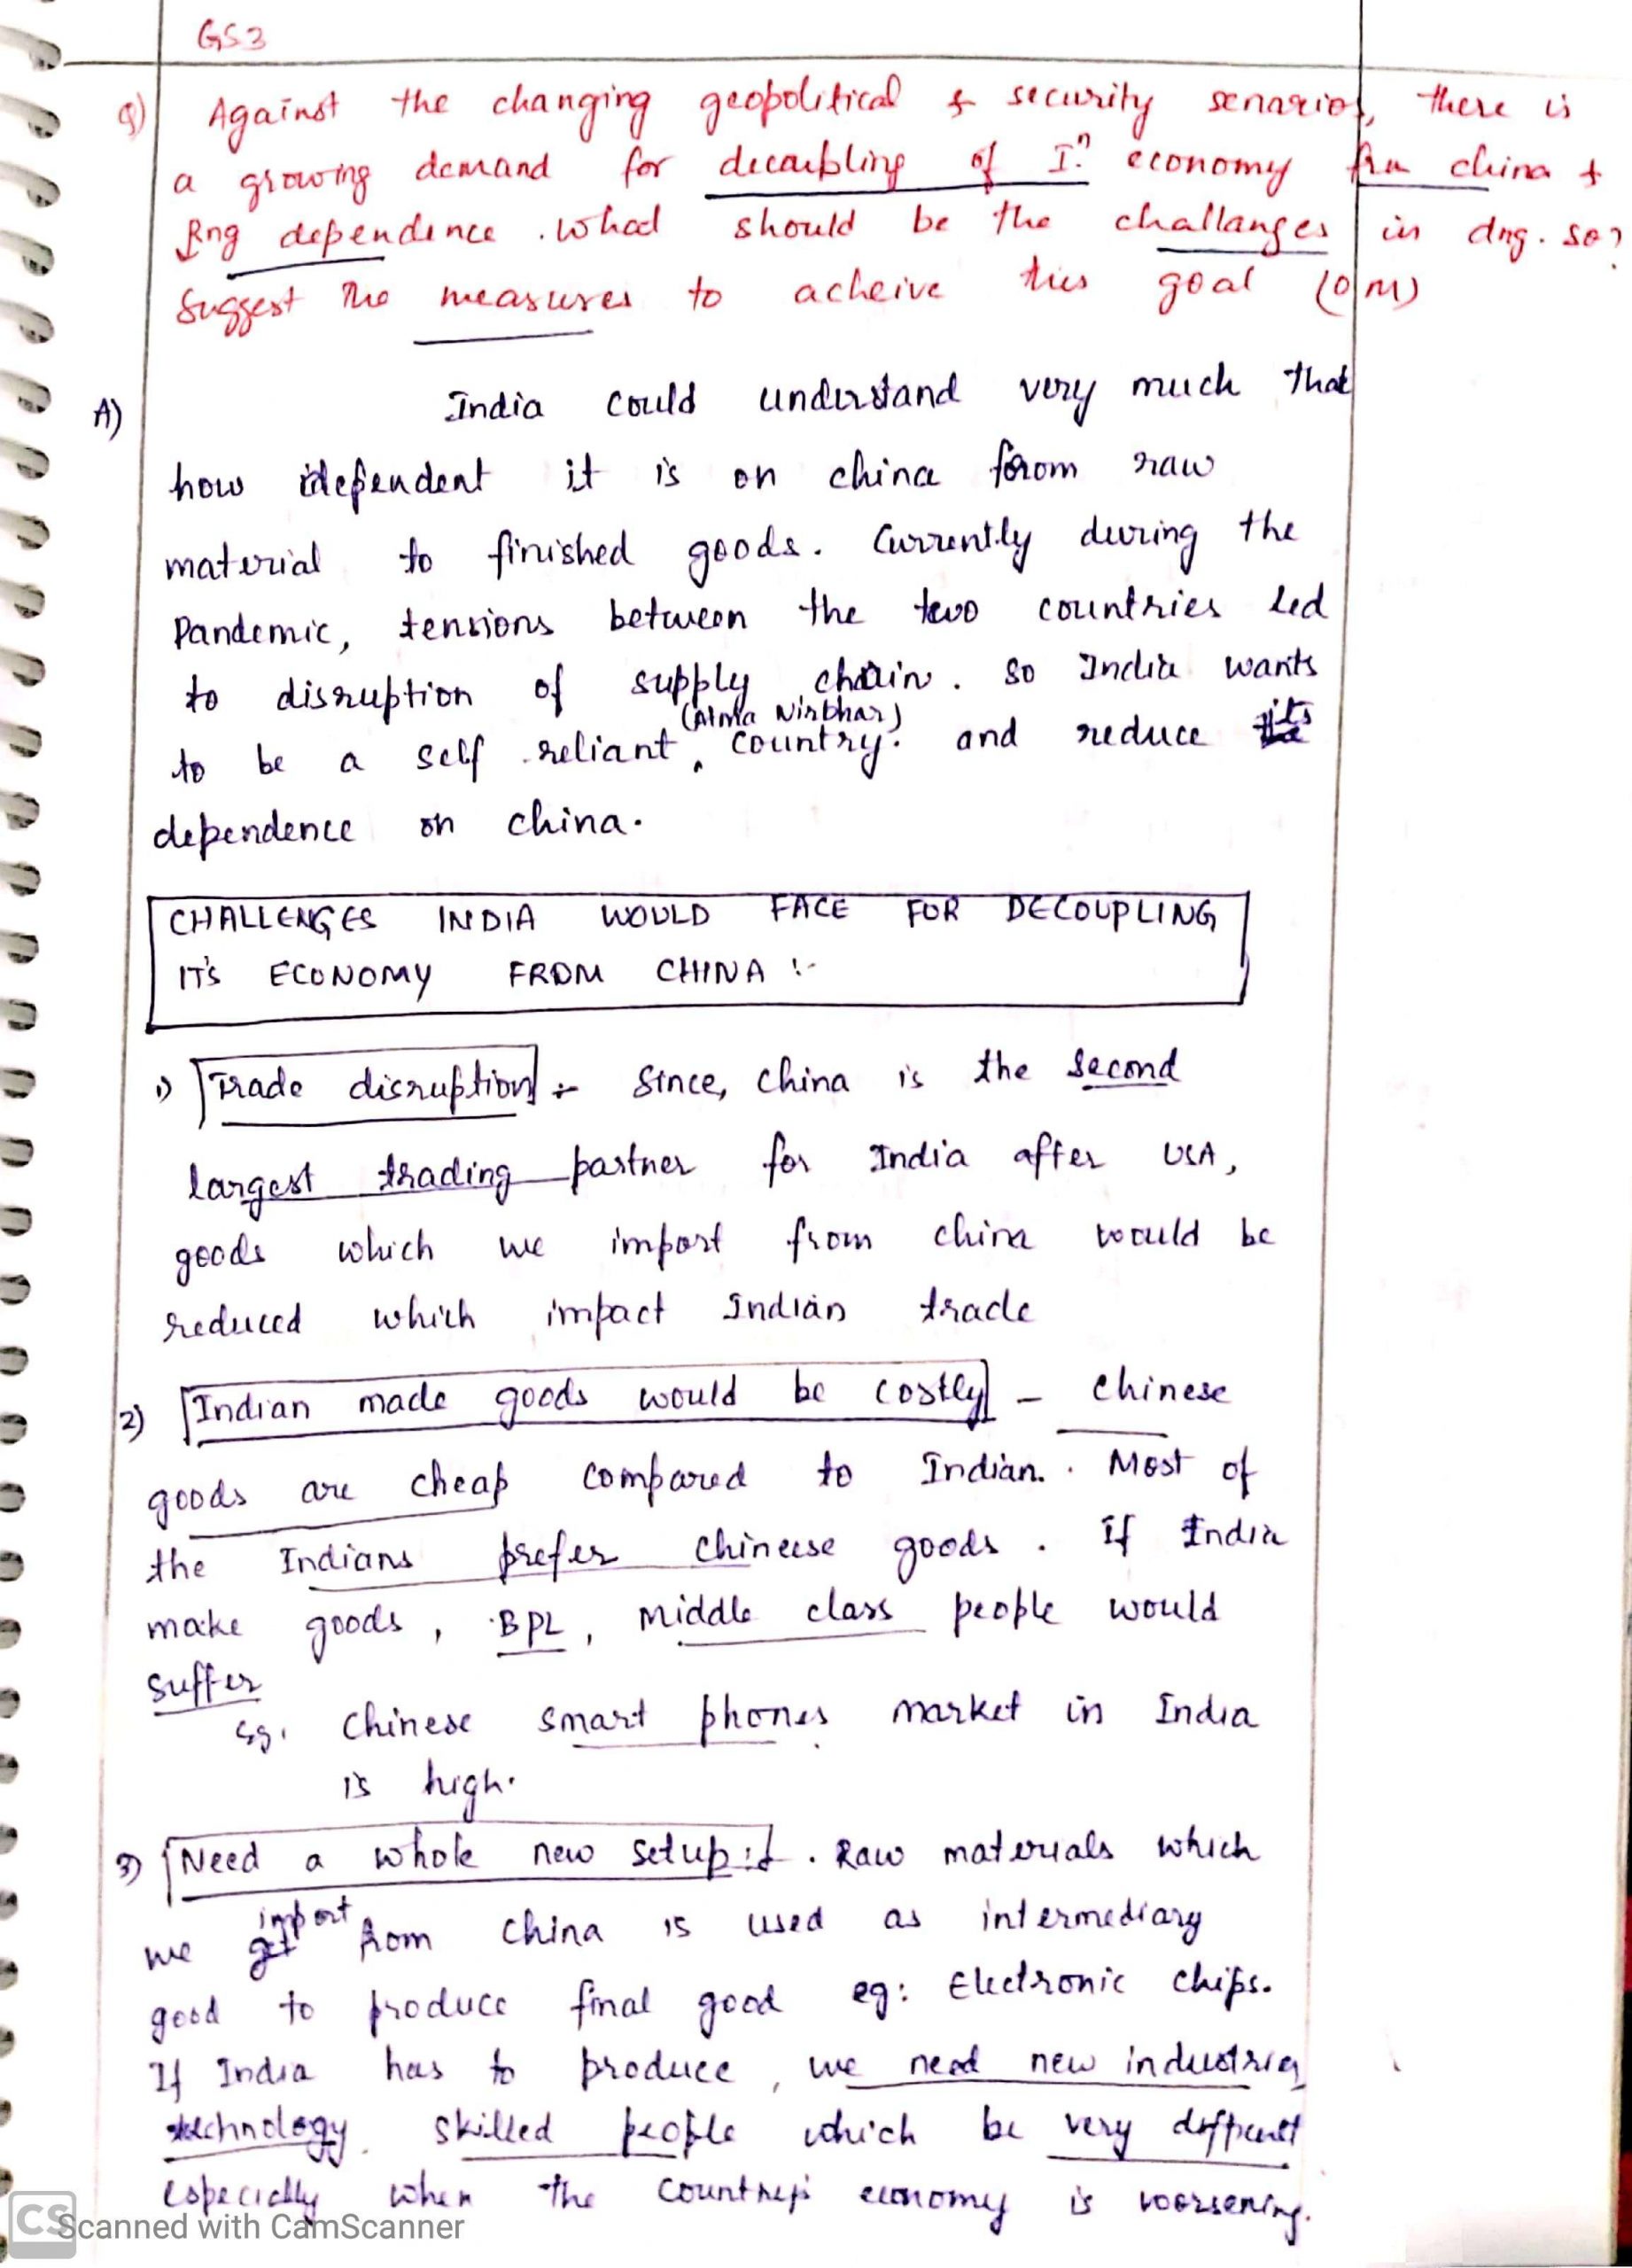 GS3
Q) Against the changing geopolitical & security senarios, there is
a growing demand for decoupling of Iⁿ economy frm china &
Rng dependence. What should be the challanges in dng. so?
Suggest the measures to acheive this goal (10M)
A) India could understand very much that
how dependent it is on china from raw
material to finished goods. Currently during the
Pandemic, tensions between the two countries led
to disruption of supply chain. So India wants
to be a self reliant (Atma Nirbhar) country. and reduce its
dependence on china.
CHALLENGES INDIA WOULD FACE FOR DECOUPLING
IT'S ECONOMY FROM CHINA :-
1) Trade disruption :- Since, China is the second
largest trading partner for India after USA,
goods which we import from china would be
reduced which impact Indian trade
2) Indian made goods would be costly - Chinese
goods are cheap compared to Indian. Most of
the Indians prefer Chineese goods. If India
make goods, BPL, Middle class people would
suffer
Eg. Chinese smart phones market in India
is high.
3) Need a whole new setup :- . Raw materials which
we import from China is used as intermediary
good to produce final good eg: Electronic chips.
If India has to produce, we need new industries
technology. skilled people which be very difficult
especially when the country's economy is worsening.
CS Scanned with CamScanner